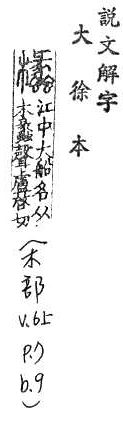 説文解字
大徐本
江中大船名从
木蠡聲盧啓切
(木部 v.6上 p.7 b.9)